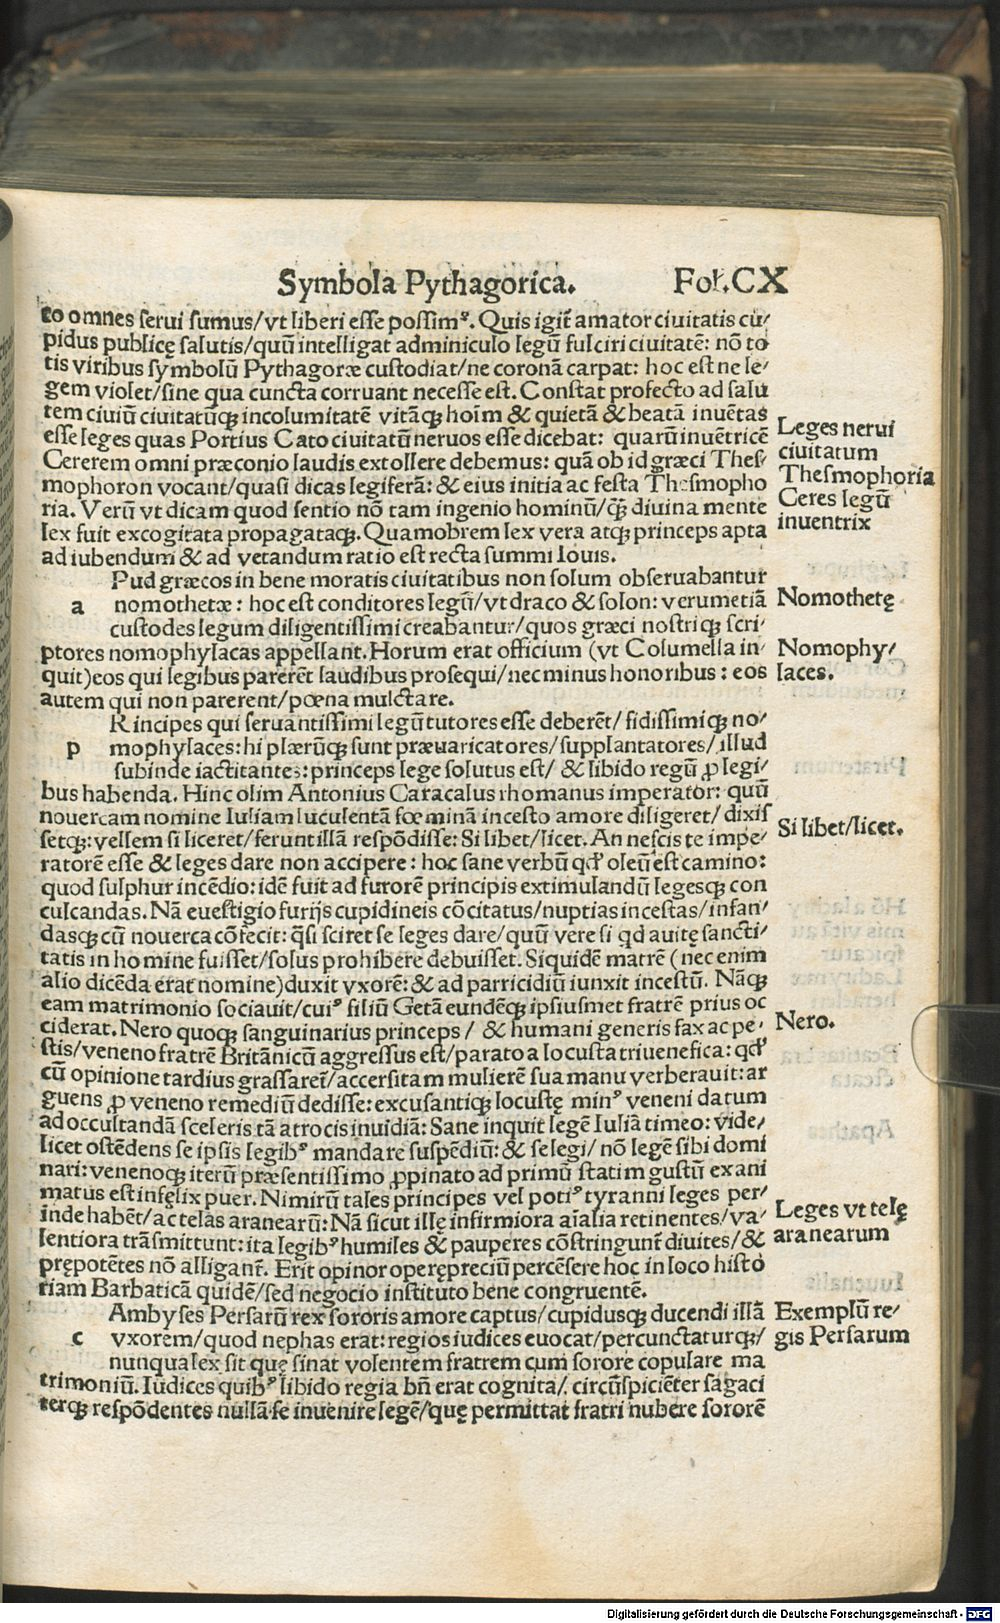 Symbola Pythagorica. Fol.CX
to omnes serui sumus/vt liberi esse possimꝰ. Quis igit̃ amator ciuitatis cu/
pidus publicę salutis/quū intelligat adminiculo legū fulciri ciuitatē: nō to
tis viribus symbolū Pythagoræ custodiat/ne coronā carpat: hoc est ne le/
gem violet/sine qua cuncta corruant necesse est. Constat profecto ad salu
tem ciuiū ciuitatūqꝫ incolumitatē vitāqꝫ hoīm & quietā & beatā inuētas
esse leges quas Portius Cato ciuitatū neruos esse dicebat: quarū inuētricē
Cererem omni præconio laudis extollere debemus: quā ob id græci Thes/
mophoron vocant/quasi dicas legiferā: & eius initia ac festa Thesmopho
ria. Verū vt dicam quod sentio nō tam ingenio hominū/qꝫ̃ diuina mente
lex fuit excogitata propagataqꝫ. Quamobrem lex vera atqꝫ princeps apta
ad iubendum & ad vetandum ratio est recta summi Iouis.
Leges nerui
ciuitatum
Thesmophoria
Ceres legū
inuentrix
Pud græcos in bene moratis ciuitatibus non solum obseruabantur
a nomothetæ: hoc est conditores legū/vt draco & solon: verumetiā
custodes legum diligentissimi creabantur/quos græci nostriqꝫ scri/
ptores nomophylacas appellant. Horum erat officium (vt Columella in/
quit)eos qui legibus parerēt laudibus prosequi/nec minus honoribus: eos
autem qui non parerent/pœna mulctare.
Nomothetę
Nomophy/
laces.
Rincipes qui seruantissimi legū tutores esse deberēt/fidissimiqꝫ no/
p mophylaces: hi plærūqꝫ sunt præuaricatores/supplantatores/illud
subinde iactitantes: princeps lege solutus est/ & libido regū ꝓ legi/
bus habenda. Hinc olim Antonius Caracalus rhomanus imperator: quū
nouercam nomine Iuliam luculentā fœminā incesto amore diligeret/dixis
setqꝫ: vellem si liceret/ferunt illā respōdisse: Si libet/licet. An nescis te impe/
ratorē esse & leges dare non accipere: hoc sane verbū qđ oleū est camino:
quod sulphur incēdio: idē fuit ad furorē principis extimulandū legesqꝫ con
culcandas. Nā euestigio furijs cupidineis cōcitatus/nuptias incestas/infan/
dasqꝫ cū nouerca cōfecit: q̃si sciret se leges dare/quū vere si qd auitę sancti/
tatis in homine fuisset/solus prohibere debuisset. Siquidē matrē (nec enim
alio dicēda erat nomine)duxit vxorē: & ad parricidiū iunxit incestū. Nāqꝫ
eam matrimonio sociauit/cuiꝰ filiū Getā eundēqꝫ ipsiusmet fratrē prius oc
ciderat. Nero quoqꝫ sanguinarius princeps/ & humani generis fax ac pe/
stis/veneno fratrē Britānicū aggressus est/parato a locusta triuenefica: qđ
cū opinione tardius grassaret̃/accersitam mulierē sua manu verberauit: ar
guens ꝓ veneno remediū dedisse: excusantiqꝫ locustę minꝰ veneni datum
ad occultandā sceleris tā atrocis inuidiā: Sane inquit legē Iuliā timeo: vide/
licet ostēdens se ipsis legibꝰ mandare suspēdiū: & se legi/ nō legē sibi domi
nari: venenoqꝫ iterū præsentissimo ꝓpinato ad primū statim gustū exani
matus est infęlix puer. Nimirū tales principes vel potiꝰ tyranni leges per/
inde habēt/ac telas aranearū: Nā sicut illę infirmiora aīalia retinentes/va/
lentiora trāsmittunt: ita legibꝰ humiles & pauperes cōstringunt̃ diuites/&
prępotētes nō alligant̃. Erit opinor operępreciū percēsere hoc in loco histo
riam Barbaticā quidē/sed negocio instituto bene congruentē.
Si libet/licet.
Nero.
Leges vt telę
aranearum
Ambyses Persarū rex sororis amore captus/cupidusqꝫ ducendi illā
c vxorem/quod nephas erat: regios iudices euocat/percunctaturqꝫ/
nunqua lex sit quę sinat volentem fratrem cum sorore copulare ma
trimoniū. Iudices quibꝰ libido regia bñ erat cognita/ circūspiciēter sagaci
terqꝫ respōdentes nullā se inuenire legē/quę permittat fratri nubere sororē
Exemplū re/
gis Persarum
Digitalisierung gefördert durch die Deutsche Forschungsgemeinschaft - DFG